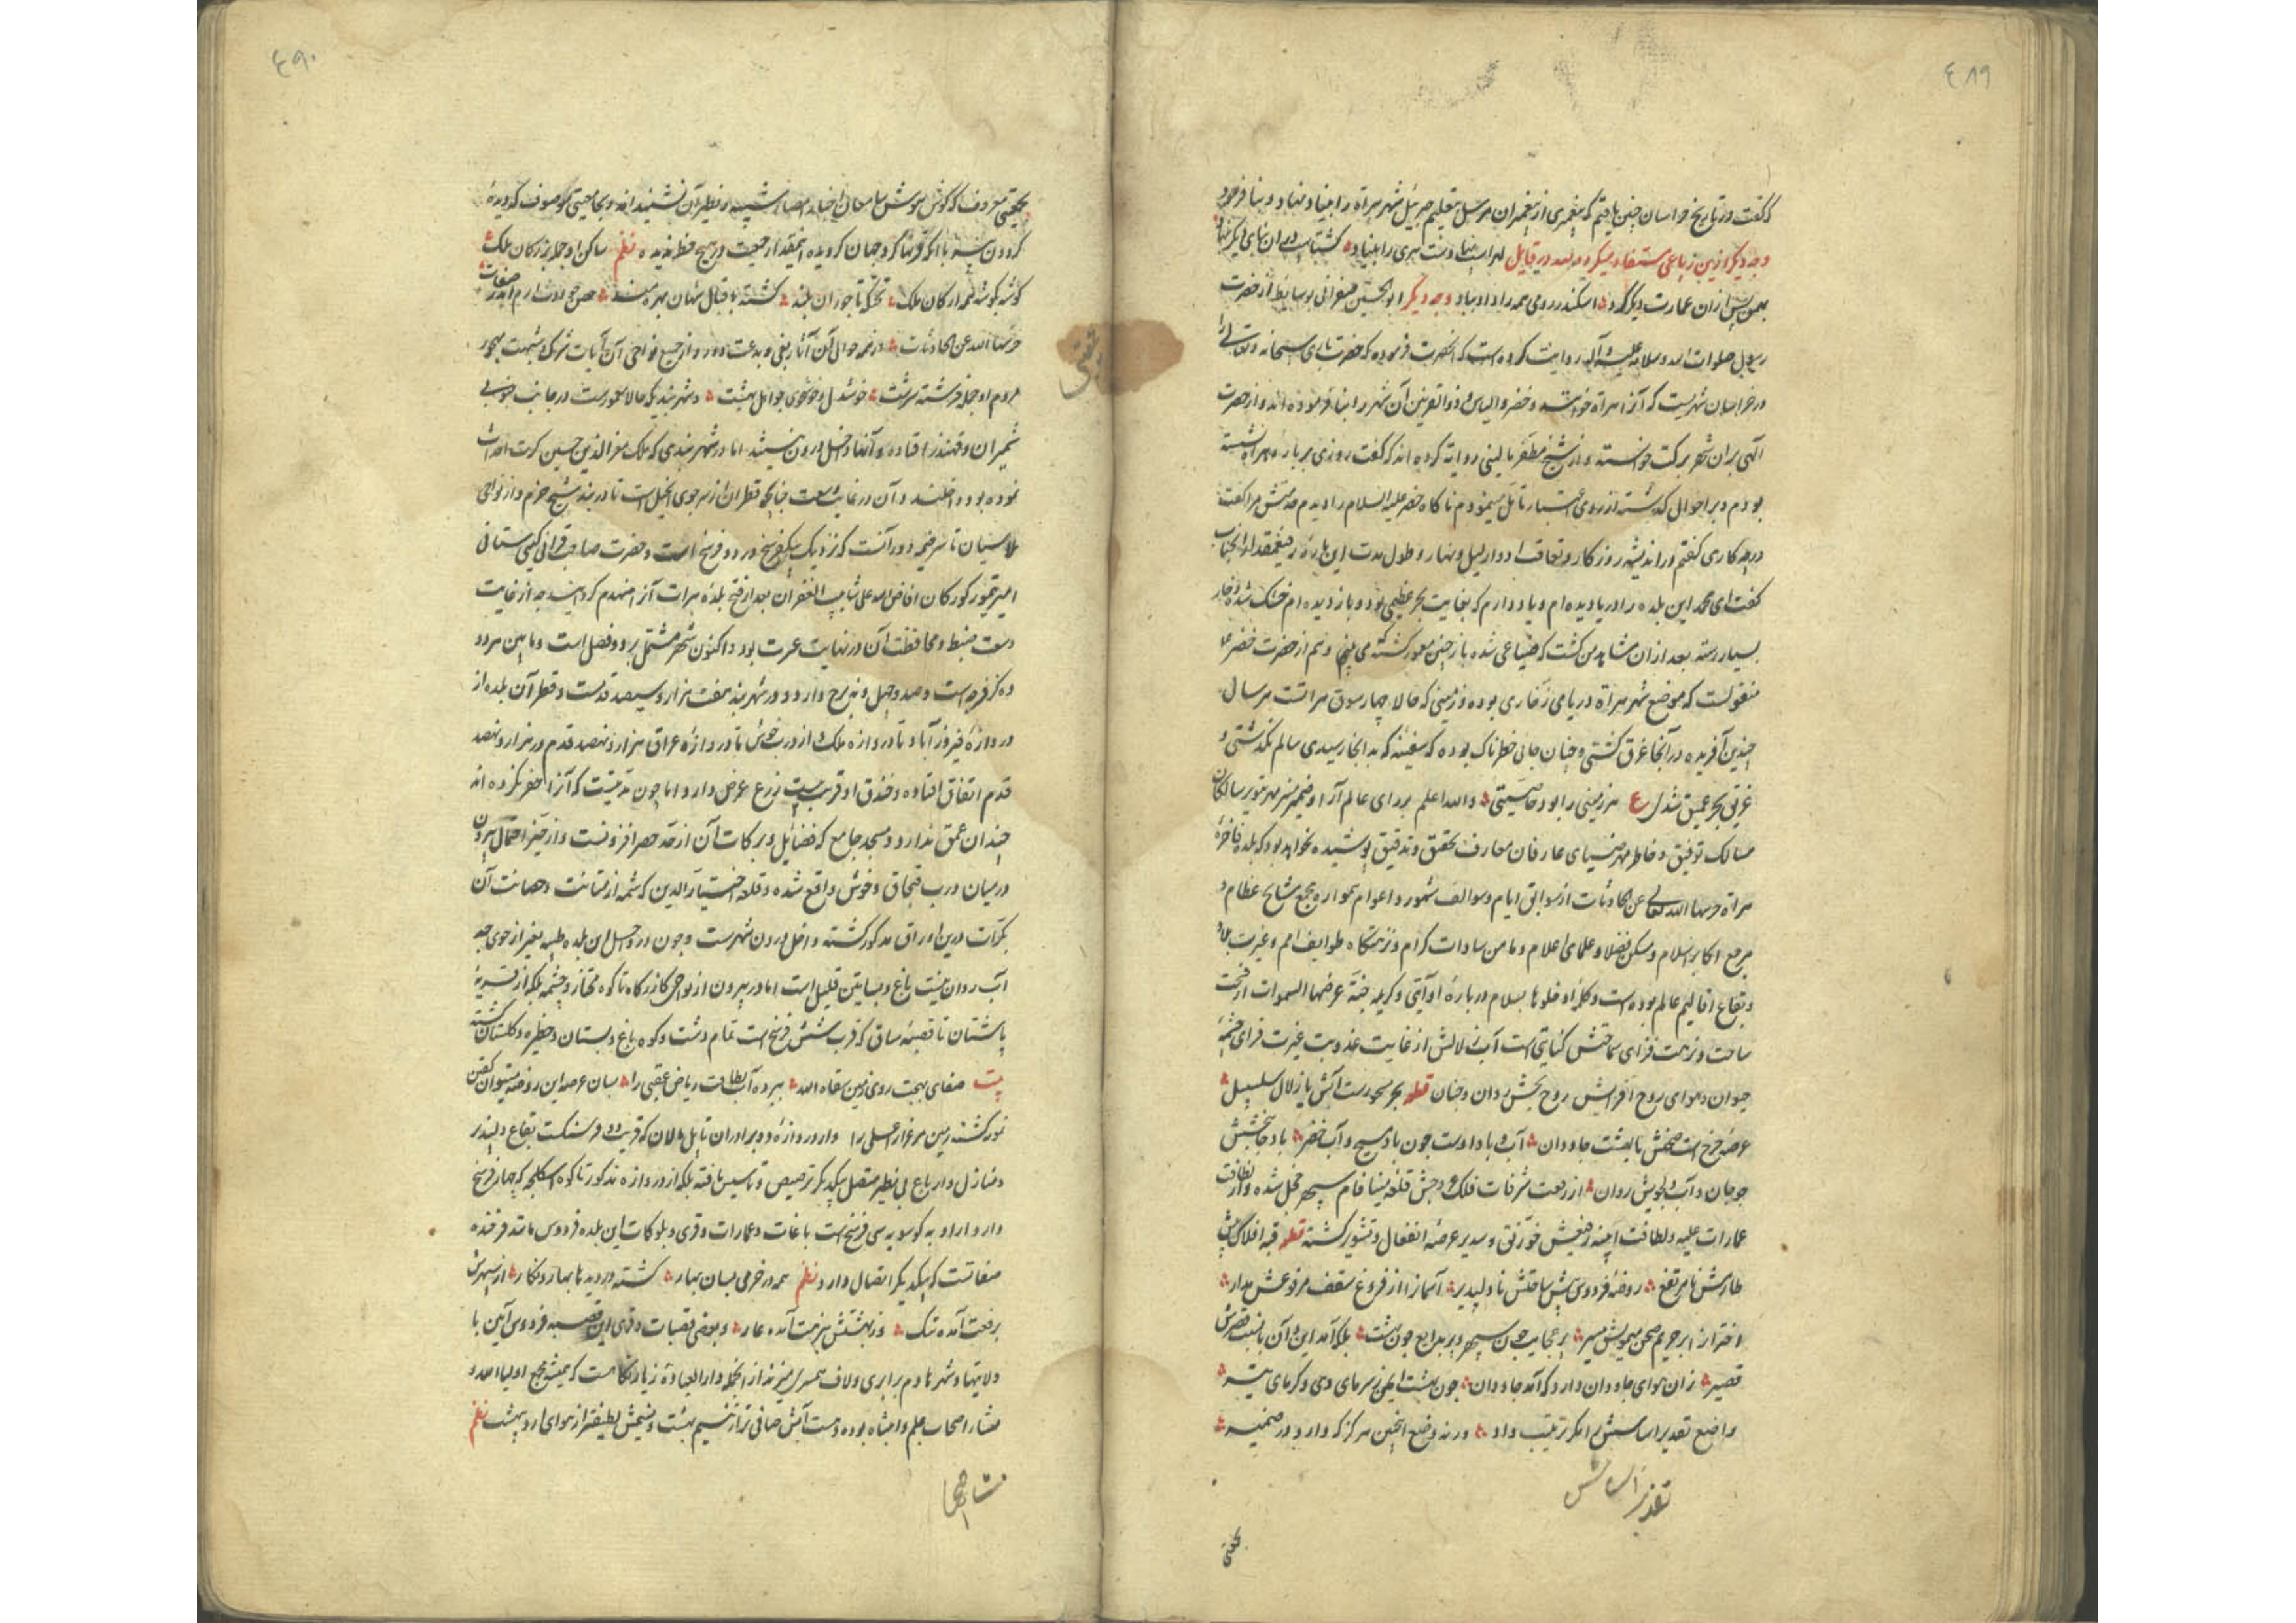 ٤٨٩
که گفت در تاریخ خراسان چنین یافتم که پیغمبری از پیغمبران مرسل بتعلیم جبرئیل شهر هراة را بنیاد نهاد و بنا فرمود
وجه دیگر ازین رباعی مستفاد میگردد لهراسب نهادست هری را بنیاد گشتاسب درو بنای دیگر نهاد
بهمن پس ازان عمارت دیگر کرد اسکندر رومی همه را داد بباد وجه دیگر ابو الحسین از حضرت
رسول صلوات الله و سلامه علیه و آله روایت کرده است که آنحضرت فرموده که حضرت باری سبحانه و تعالی را
در خراسان شهریست که آنرا هراة خوانند و خضر و الیاس و ذوالقرنین آن شهر را بنا فرموده اند و از حضرت
الهی بران شهر برکت خواسته و از شیخ مظفر مالینی روایة کرده اند که گفت روزی بر باره هراة نشسته
بودم و بر احوال گذشته از روی اعتبار تامل مینمودم ناگاه خضر علیه السلام را دیدم مرا گفت
در چه کاری گفتم در اندیشه روزکار و تعاقب ادوار لیل و نهار و طول مدت این باره
گفت ای محمد این بلده را دریا دیده ام و یاد دارم که بغایت بحر عظیمی بود و باز دیده ام خشک شده و خار
بسیار رسته بعد ازان مشاهد من گشت که ضیاعی شده باز چنین معمور گشته می بینم و هم از حضرت خضر علیه
منقولست که موضع شهر هراة دریای زخاری بوده و زمینی که حالا چهار سوق هراتست هر سال
چندین آفریده در آنجا غرق گشتی و چنان جای خطرناک بوده که سفینه که به آنجا رسیدی سالم نگذشتی و
غریق بحر عمیق شدی ع هر زمینی را بود خاصیتی و الله اعلم بر رای عالم آرا و ضمیر منیر مهر تنویر سالکان
مسالک توفیق و خاطر مهر ضیای عارفان معارف تحقیق و تدقیق پوشیده نخواهد بود که بلده فاخره
هراة حرسها الله تعالی عن الحادثات از سوابق ایام و سوالف شهور و اعوام همواره مجمع مشایخ عظام و
مرجع اکابر اسلام و مسکن فضلا و علمای اعلام و مامن سادات کرام و نزهتگاه طوایف امم و غیرت بلاد
و بقاع اقالیم عالم بوده است و کلمه ادخلوها بسلام در باره او آیتی و کریمه جنة عرضها السموات از فسحت
ساحت و نزهت فزای ساحتش کنایتی است آب زلالش از غایت عذوبت غیرت فزای چشمه
حیوان و هوای روح افزایش روح بخش روان و جنان قطعه بحر مسجورست آبش یا زلال سلسبیل
عرصه چرخ است صحنش یا بهشت جاودان آب و باد اوست چون باد مسیح و آب خضر باد جانبخشش
چو جان و آب دلجویش روان از رفعت شرفات فلک و جش قلعه مینا فام سپهر خجل شده و از نظافت
عمارات علیه و لطافت ابنیه رفیعش خورنق و سدیر عرصه انفعال و تشویر گشته قطعه قبه افلاک پیش
طارمش نامرتفع روضه فردوس پیش ساحتش نادلپذیر آسمانرا از فروغ سقف مرفوعش مدار
اختر ار بر حریم صحن میمونش مسیر پر عجایب چون سپهر و پر بدایع چون بهشت بلکه آمد این و آن با نسبت قصرش
قصیر زان هوای جاودان دارد که آمد جاودان چون بهشت ایمن ز سرمای دی و گرمای تیر
واضع تقدیر اساسش را مگر ترتیب داد ورنه وضع انچنین هرگز که دارد در ضمیر
تقدیر اساسش
٤٩٠
معروف که گوش هوش سامعان اخبار امصار شبیه و نظیر آن نشنیده اند و بجامعیتی موصوف که دیده
گردون پیر با انکه قرنها گرد جهان گردیده اینمقدار جمعیت در هیچ خطه ندیده نظم ساکن او جمله بزرگان ملک
گوشه بگوشه همه ارکان ملک تختگه تاجوران بلند گشته باقبال شهان بهره مند
حرسها الله عن الحادثات در همه حوالی آن آثار بغی و بدعت دور و از جمیع نواحی آن آیات شرک و شبهت مهجور
مردم او جمله فرشته سرشت خوشدل و خوشخوی چو اهل بهشت و شهربندی که حالا معمورست در جانب جنوبی
شمیران و قهندز افتاده و آنها داخل درون نیستند اما در شهربندی که ملک معز الدین حسین کرت احداث
نموده بود داخلند و آن در غایت وسعت چنانچه قطران از سر جوی انجیل است تا در بند شیخ خرم و از نواحی
ملاسیان تا سر خیمه دور آنست که نزدیک بیکفرسخ در دو فرسخ است و حضرت صاحب قرانی گیتی ستانی
امیر تیمور گورکان افاض الله علی شابیب الغفران بعد از فتح بلده هرات آنرا منهدم گردانید چه از غایت
وسعت ضبط و محافظت آن در نهایت عسرت بود و اکنون شهر مشتمل بر دو فصل است و مابین هر دو
ده گز فرجه است و صد و چهل و نه برج دارد و دور شهربند هفت هزار و سیصد قدمست و قطر آن بلده از
دروازه فیروزآباد تا دروازه ملک و از درب خوش تا دروازه عراق هزار و نهصد قدم در هزار و نهصد
قدم اتفاق افتاده و خندق او قریب بیست زرع عرض دارد اما چون مدتیست که آنرا حفر نکرده اند
چندان عمق ندارد و مسجد جامع که فضایل و برکات آن از حد حصر افزونست و از حیز احتمال بیرون
در میان درب قبچاق و خوش واقع شده و قلعه اختیار الدین که شمه از متانت و حصانت آن
بکرات درین اوراق مذکور گشته داخل درون شهرست و چون در داخل این بلده طیبه بغیر از جوی چه
آب روان نیست باغ و بساتین قلیل است اما در بیرون از نواحی گازرگاه تا کوه مختار و چشمه بلکه از قریه
پاشتان تا قصبه ساق که قریب شش فرسخ است تمام دشت و کوه باغ و بستان و حظیره و گلستان گشته
بیت صفای بهجت روی زمین سقاه الله ببرده آب لطافت ریاض عقبی را بسان عرصه این روضه میتوان گفتن
نمونه گشته زمین مرغزار اعلی را و از دروازه دو برادران تا پل مالان که قریب دو فرسنگست بقاع دلپذیر
و منازل و ارباع بی نظیر متصل بیکدیگر ترصیص و تاسیس یافته بلکه از دروازه مذکور تا کوه اسکلجه که چهار فرسخ
دارد از اوبه به کوسویه سی فرسخ است باغات و عمارات و قری و بلوکات این بلده فردوس مانند فرخنده
صفاتست که بیکدیگر اتصال دارد نظم همه در خرمی بسان بهار گشته در دیدها بهار و نگار از سپهرش
برفعت آمده ننگ وز بهشتش بنزهت آمده عار و بعضی قصبات و قری این قصبه فردوس آئین با
ولایتها و شهرها دم برابری و لاف همسری میزند از انجمله دار العباده زیارتگاهست که همیشه مجمع اولیاء الله و
منشاء اصحاب علم و انتباه بوده و هست آبش صافی تر از تسنیم بهشت و نسیمش لطیفتر از هوای اردیبهشت نظم